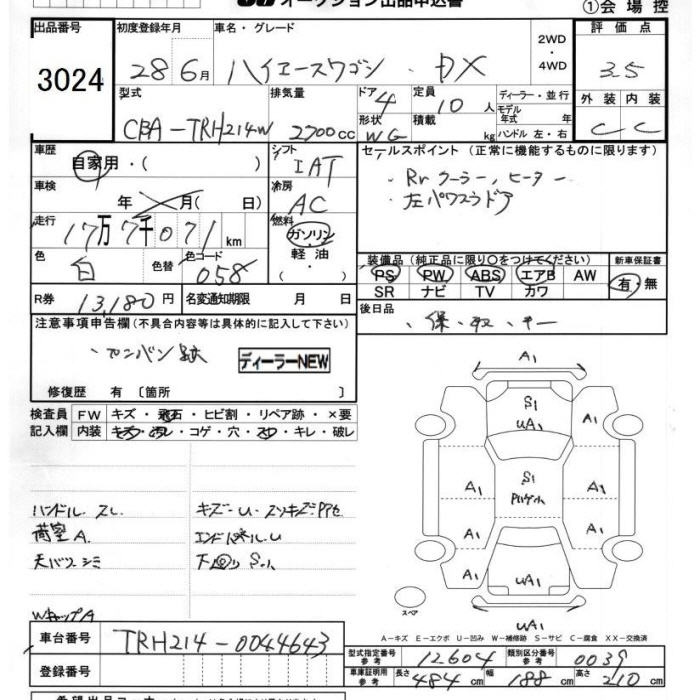 オークション出品申込書 ①会場控
出品番号 初度登録年月 車名・グレード 2WD・4WD 評価点
3024 28年6月 ハイエースワゴン・DX 3.5
型式 排気量 ドア 4 定員 10人 ディーラー・並行 外装 内装
CBA-TRH214W 2700cc 形状 WG 積載 kg モデル年式 年式 ハンドル 左・右 C C
車歴 自家用・( ) シフト IAT セールスポイント (正常に機能するものに限ります)
車検 年 月( 日) 冷房 AC ・Rrクーラー, ヒーター
・左パワースラドア
走行 17万7千071km 燃料 ガソリン・軽油・
色 白 色替 色コード 058 装備品 (純正品に限り○をつけてください) 新車保証書
PS PW ABS エアB AW 有・無
SR ナビ TV カワ
R券 13,180円 名変通知期限 月 日 後日品
・保・取・キー
注意事項申告欄 (不具合内容等は具体的に記入して下さい)
・カンバン跡 ディーラーNEW
修復歴 有 〔箇所 〕
検査員 FW キズ・飛石・ヒビ割・リペア跡・×要
記入欄 内装 キズ・汚レ・コゲ・穴・スレ・キレ・破レ
ハンドル スレ
荷室 A
天バリ シミ
WキャップA
エンドパネルU
下回り S
A1
S1
UA1
A1 A1
S1
A1 A1
A1 A1
UA1
UA1
スペア
A-キズ E-エクボ U-凹み W-補修跡 S-サビ C-腐食 XX-交換済
車台番号 TRH214-0044643
型式指定番号 参考 12604 類別区分番号 参考 0039
登録番号 車庫証明用 参考 長さ 484cm 幅 188cm 高さ 210cm